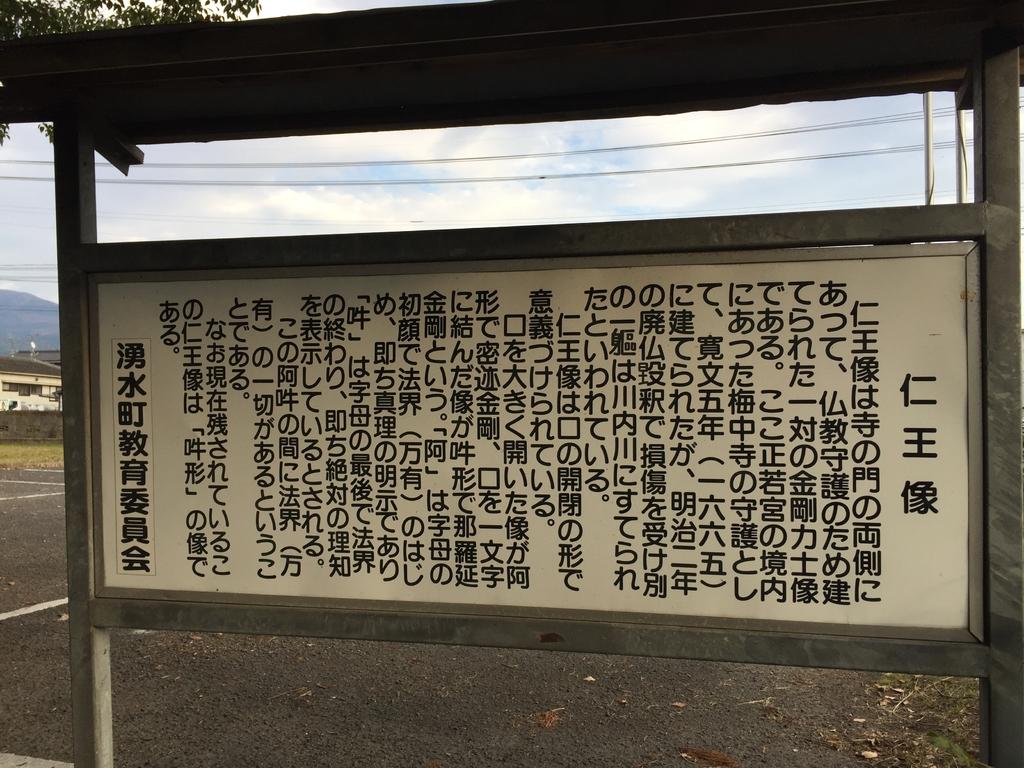 仁王像
仁王像は寺の門の両側に
あって、仏教守護のため建
てられた一対の金剛力士像
である。ここ正若宮の境内
にあった梅中寺の守護とし
て、寛文五年（一六六五）
に建てられたが、明治二年
の廃仏毀釈で損傷を受け別
の一軀は川内川にすてられ
たといわれている。
仁王像は口の開閉の形で
意義づけられている。
口を大きく開いた像が阿
形で密迹金剛、口を一文字
に結んだ像が吽形で那羅延
金剛という。「阿」は字母の
初顔で法界（万有）のはじ
め、即ち真理の明示であり
「吽」は字母の最後で法界
の終わり、即ち絶対の理知
を表示しているとされる。
この阿吽の間に法界（万
有）の一切があるというこ
とである。
なお現在残されているこ
の仁王像は、「吽形」の像で
ある。
湧水町教育委員会